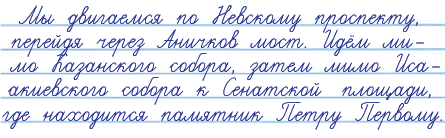 Мы двигаемся по Невскому проспекту,
перейдя через Аничков мост. Идём ми-
мо Казанского собора, затем мимо Иса-
акиевского собора к Сенатской площади,
где находится памятник Петру Первому.